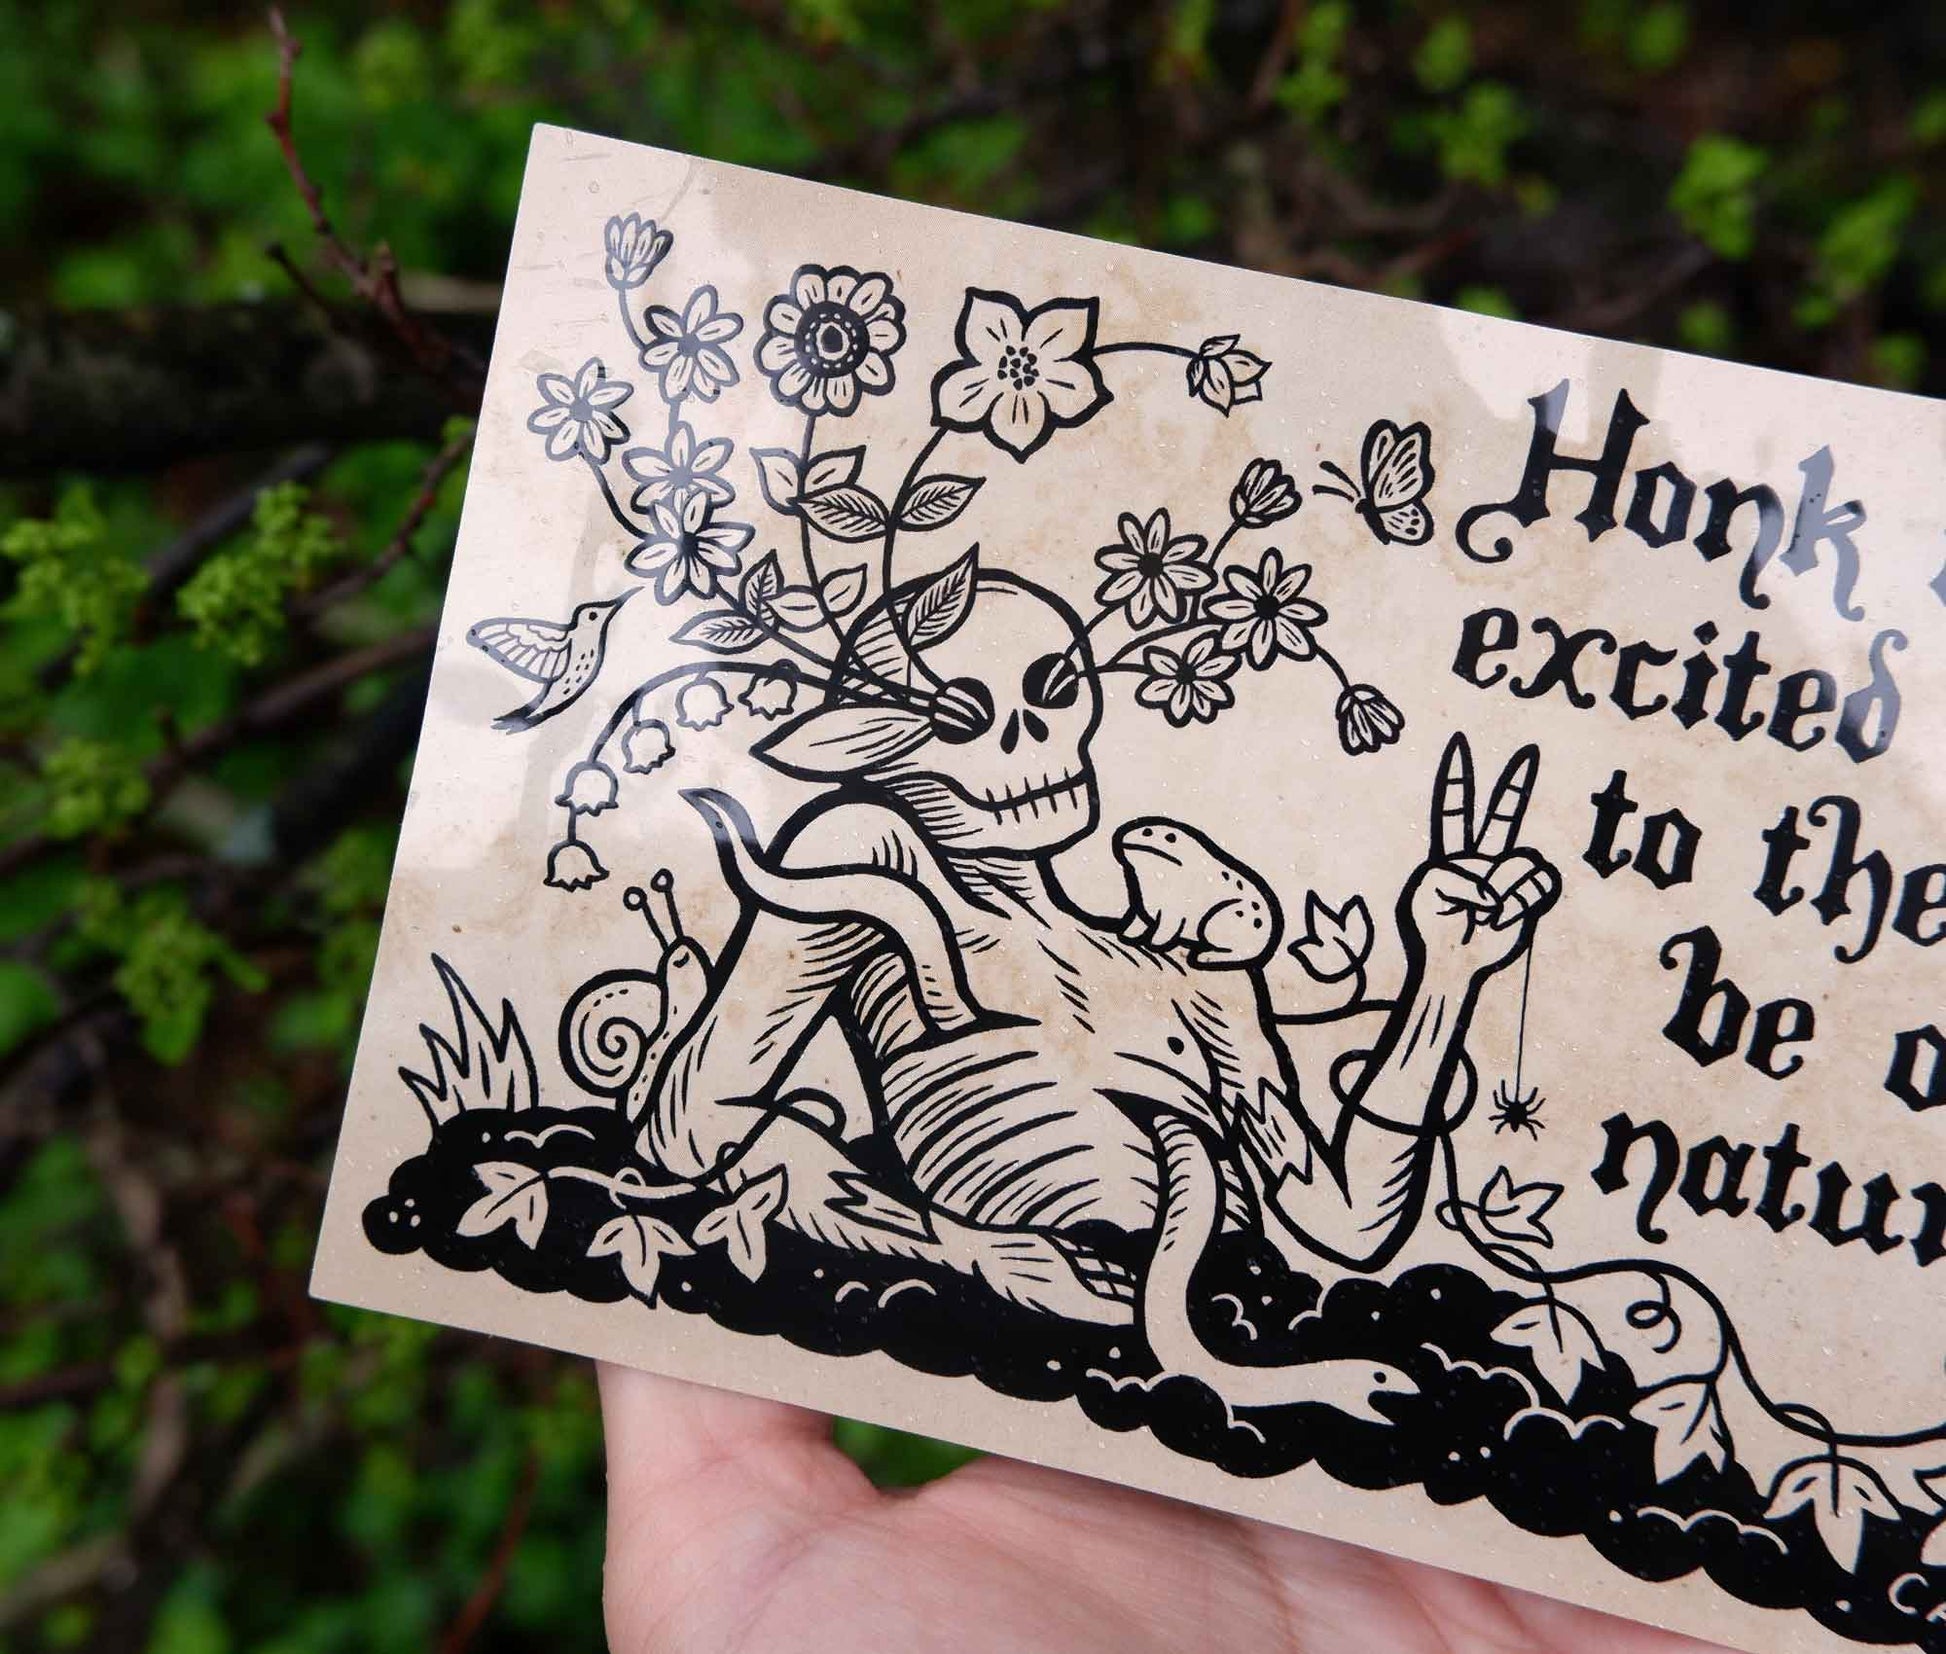 Honk
excited
to the
be
natu